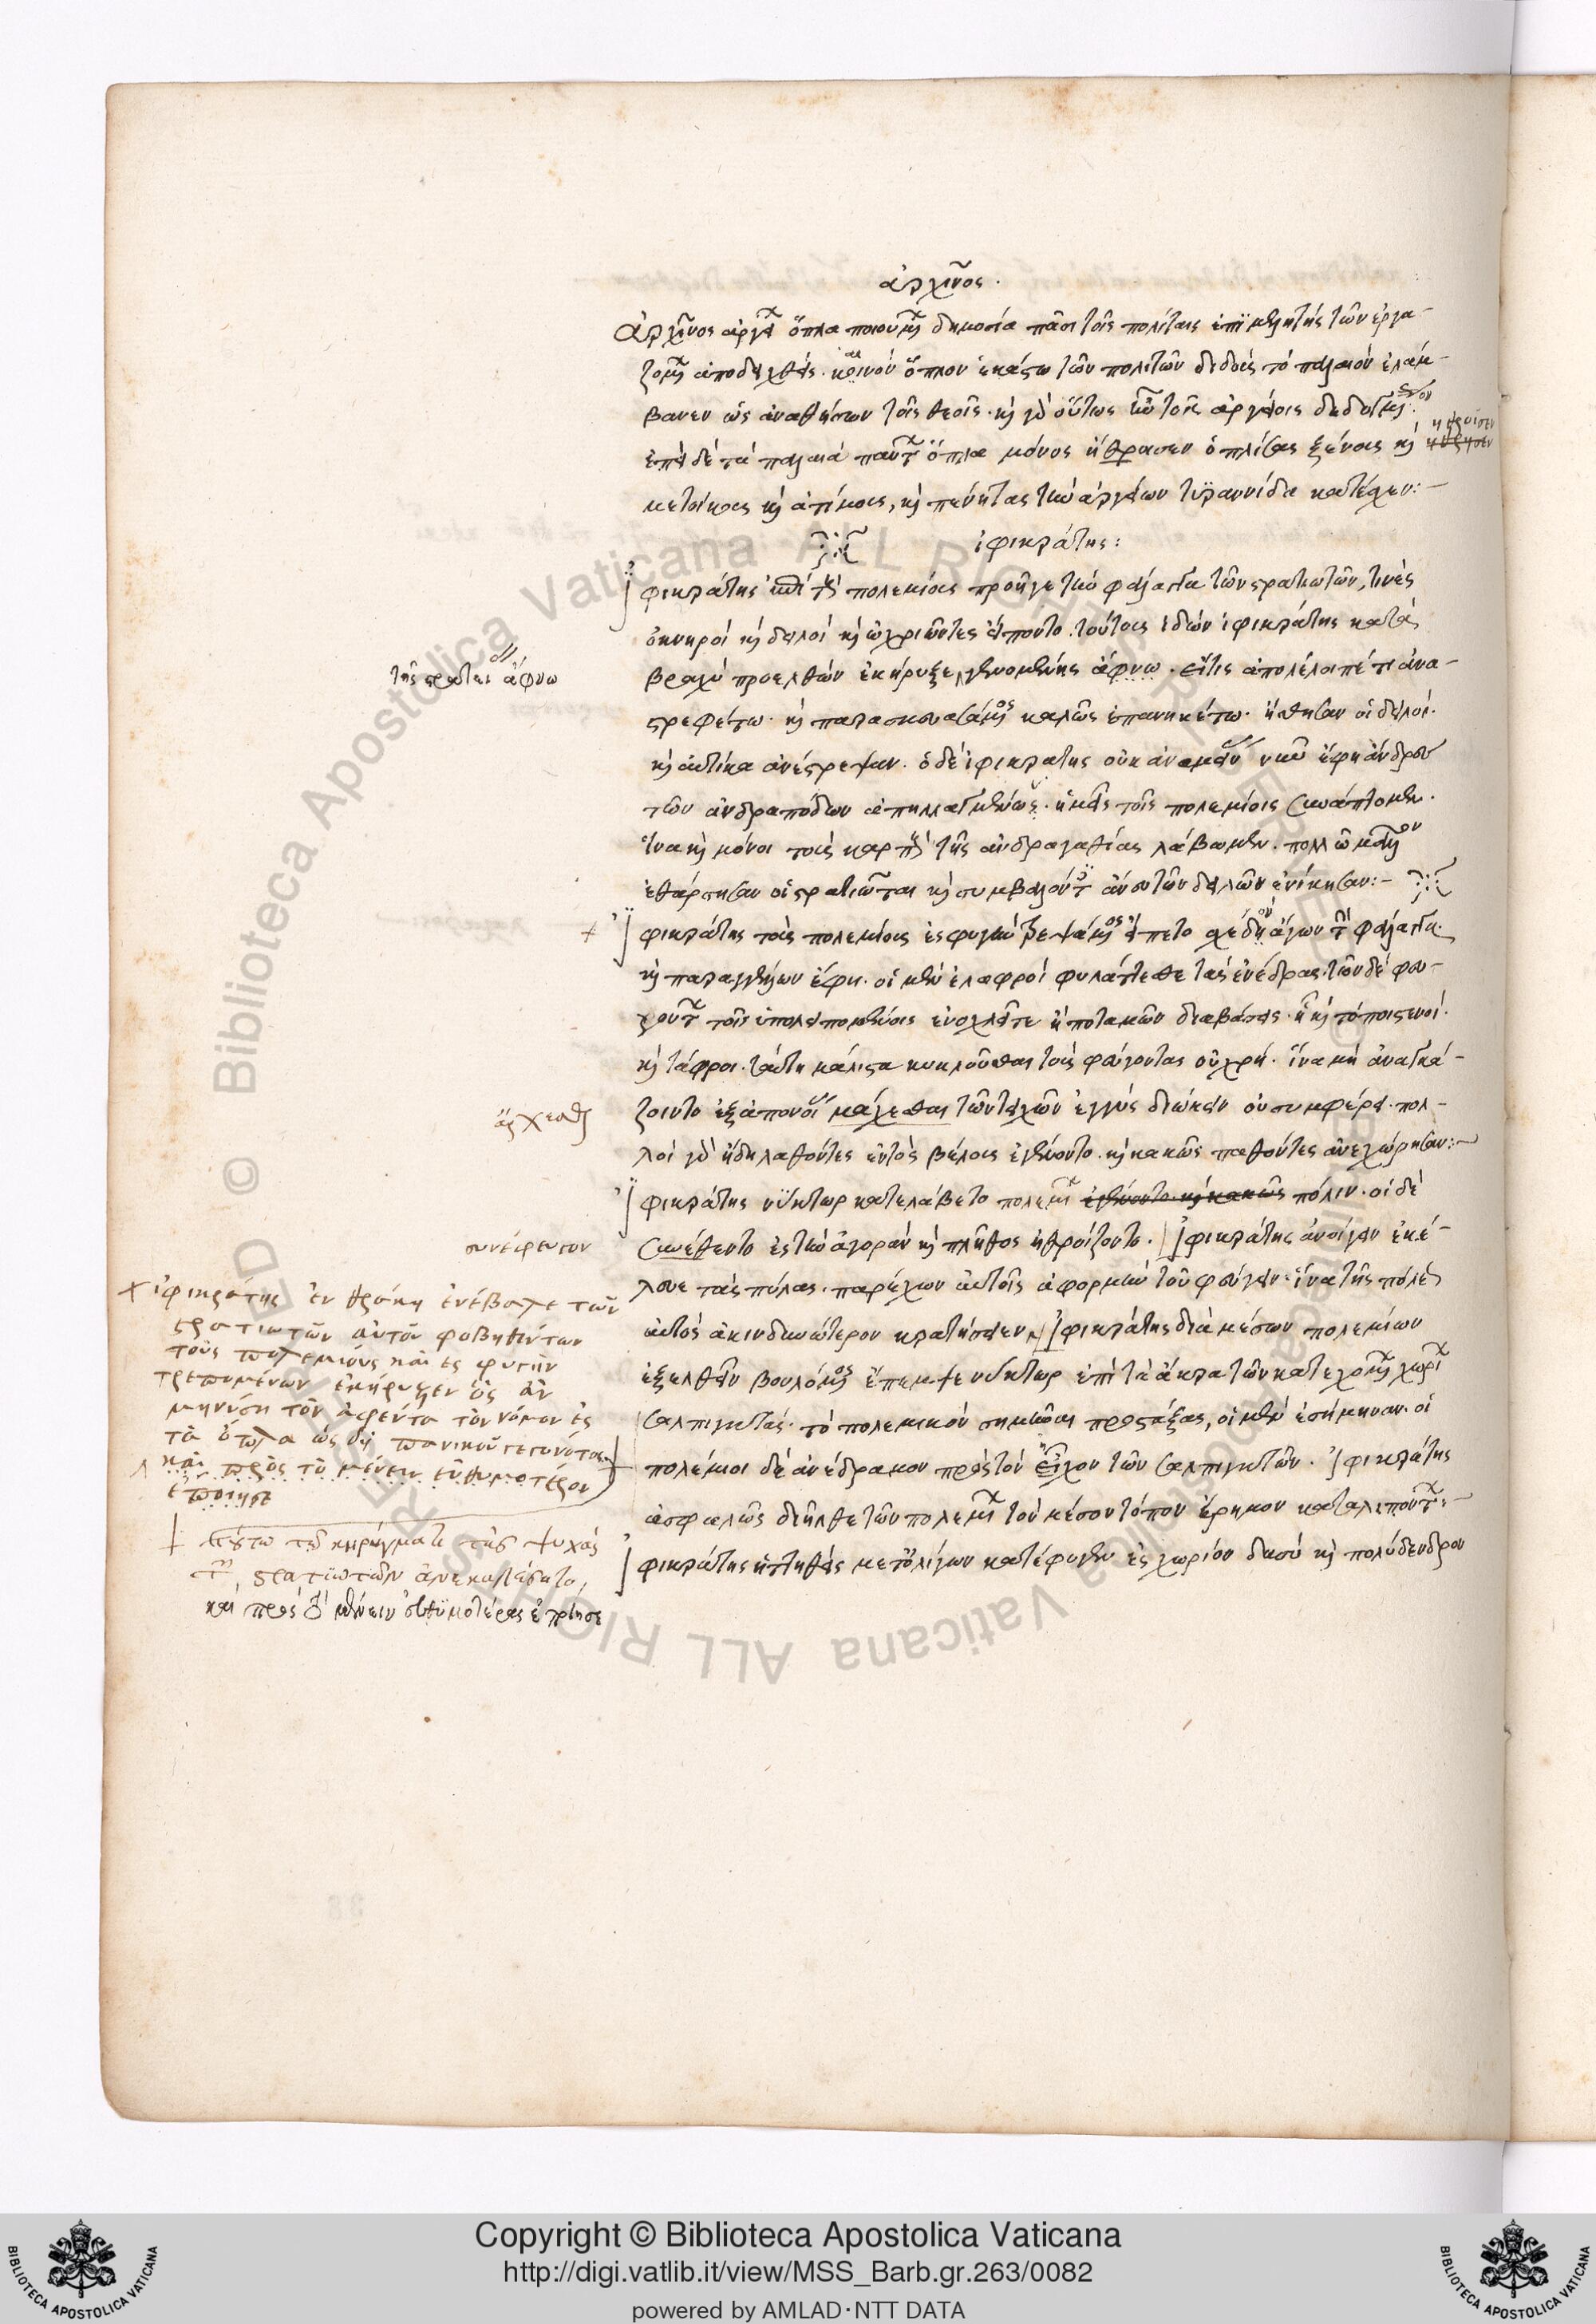 ἀρχῖνος.
Ἀρχῖνος ἀργεί ὅπλα ποιουμ δημοσία πᾶσι τοῖς πολίταις ἐπιμελητὴς τῶν ἐργα-
ζομ ἀποδειχθείς. καινὸν ὅπλον ἑκάστω τῶν πολιτῶν διδοὺς τὸ παλαιὸν ἐλάμ-
βανεν ὡς ἀναθήσων τοῖς θεοῖς. καὶ γὰρ οὕτως τοῖς ἀργείοις δεδογμένον
ἐπεὶ δὲ τὰ παλαιὰ παντ ὅπλα μόνος ἤθρασεν ὁπλίσας ξένους καὶ
μετοίκους καὶ ἀτίμους, καὶ πένητας τὴν ἀργείων τυραννίδα κατέσχεν:-
ἰφικράτης:
Ἰφικράτης πολεμίους προῆγε τὴν φάλαγγα τῶν στρατιωτῶν, τινὲς
ὀκνηροὶ καὶ δειλοὶ καὶ ὠχριῶντες εἵποντο. τούτους ἰδὼν ἰφικράτης κατὰ
τῆς ἄφνω
βραχὺ προελθὼν ἐκήρυξε γενομένης ἄφνω. εἴτις ἀπολέλοιπέ τι ἀνα-
στρεφέτω. καὶ παρασκευασάμος καλῶς ἐπανηκέτω. ἥσθησαν οἱ δειλοὶ.
καὶ αὐτίκα ἀνέστρεψαν. ὁ δὲ ἰφικράτης οὐκ ἀναμ νῦν ἔφη ἄνδρες
τῶν ἀνδραπόδων ἀπηλλαγμένως. ἡμεῖς τοῖς πολεμίοις συνάπτομεν.
ἵνα καὶ μόνοι τοὺς καρπ τῆς ἀνδραγαθίας λάβωμεν. πολλῶ μᾶλλον
ἐθάρσησαν οἱ στρατιῶται καὶ συμβαλόντ ἄνευ τῶν δειλῶν ἐνίκησαν:-
Ἰφικράτης τοὺς πολεμίους ἐς φυγὴν τρεψάμος εἵπετο σχεδὸν ἄγων τ φάλαγγα.
καὶ παραγγέλλων ἔφη. οἱ μὲν ἐλαφροὶ φυλάττεσθε τὰς ἐνέδρας. τῶν δὲ φευ-
γόντ τοῖς ὑπολειπομένοις ἐνοχλεῖτε ἢ ποταμῶν διαβάσεις. ἢ καὶ τόποι στενοί.
καὶ τάφροι. ταύτη μάλιστα κυκλοῦσθαι τοὺς φεύγοντας οὐ χρή. ἵνα μὴ ἀναγκά-
ζοιντο ἐξ ἀπονοί μάχεσθαι τῶν τειχῶν ἐγγὺς διώκειν οὐ συμφέρει. πολ-
λοὶ γὰρ ἤδη λαθόντες ἐντὸς βέλους ἐγένοντο. καὶ κακῶς παθόντες ἀνεχώρησαν:-
Ἰφικράτης νύκτωρ κατελάβετο πολεμ ἐγένοντο καὶ κακῶς πόλιν. οἱ δὲ
συνέρευσον
συνέθεντο ἐς τὴν ἀγορὰν καὶ πλῆθος ἠθροίζοντο. Ἰφικράτης ἀνοίγειν ἐκέ-
λευε τὰς πύλας. παρέχων αὐτοῖς ἀφορμὴν τοῦ φεύγειν. ἵνα τῆς πόλε
αὐτὸς ἀκινδυνώτερον κρατήσειεν. Ἰφικράτης διὰ μέσων πολεμίων
ἐξελθεῖν βουλόμος ἔπεμψε νύκτωρ ἐπὶ τὰ ἄκρα τῶν κατεχομ χωρί
σαλπιγκτὰς. τὸ πολεμικὸν σημῆναι προστάξας, οἱ μὲν ἐσήμηναν. οἱ
πολέμιοι δὲ ἀνέδραμον πρὸς τὸν ἦχον τῶν σαλπιγκτῶν. Ἰφικράτης
ἀσφαλῶς διῆλθε τῶν πολεμ τὸν μέσον τόπον ἔρημον καταλιπόντ:-
Ἰφικράτης ἡττηθεὶς μετ' ὀλίγων κατέφυγεν ἐς χωρίον δασὺ καὶ πολύδενδρον
ἰφικράτης ἐν θράκη ἐνέβαλε τῶν
στρατιωτῶν αὐτοῦ φοβηθέντων
τοὺς πολεμίους καὶ ἐς φυγὴν
τρεπομένων ἐκήρυξεν ὃς ἂν
μηνύση τὸν ἀφέντα τὸν νόμον ἐς
τὰ ὅπλα ὡς δὴ πανικοῦ γεγονότος
καὶ πρὸς τὸ μένειν εὐθυμοτέρου
ἐποίησε
τούτω τῶ κηρύγματι τὰς ψυχὰς
τῶν στρατιωτῶν ἀνεκαλέσατο,
καὶ πρὸς τὸ μένειν εὐθυμοτέρους ἐποίησε
Copyright © Biblioteca Apostolica Vaticana
http://digi.vatlib.it/view/MSS_Barb.gr.263/0082
powered by AMLAD·NTT DATA